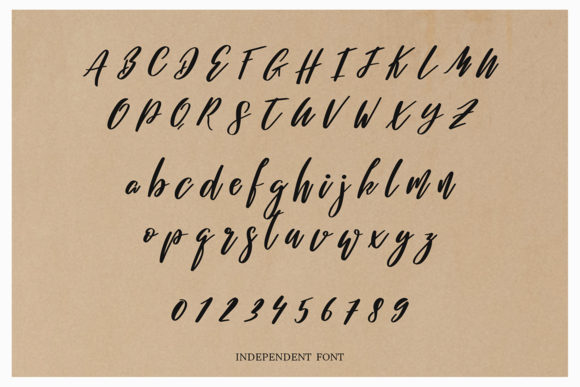 A B C D E F G H I J K L M N
O P Q R S T U V W X Y Z
a b c d e f g h i j k l m n
o p q r s t u v w x y z
0 1 2 3 4 5 6 7 8 9
INDEPENDENT FONT